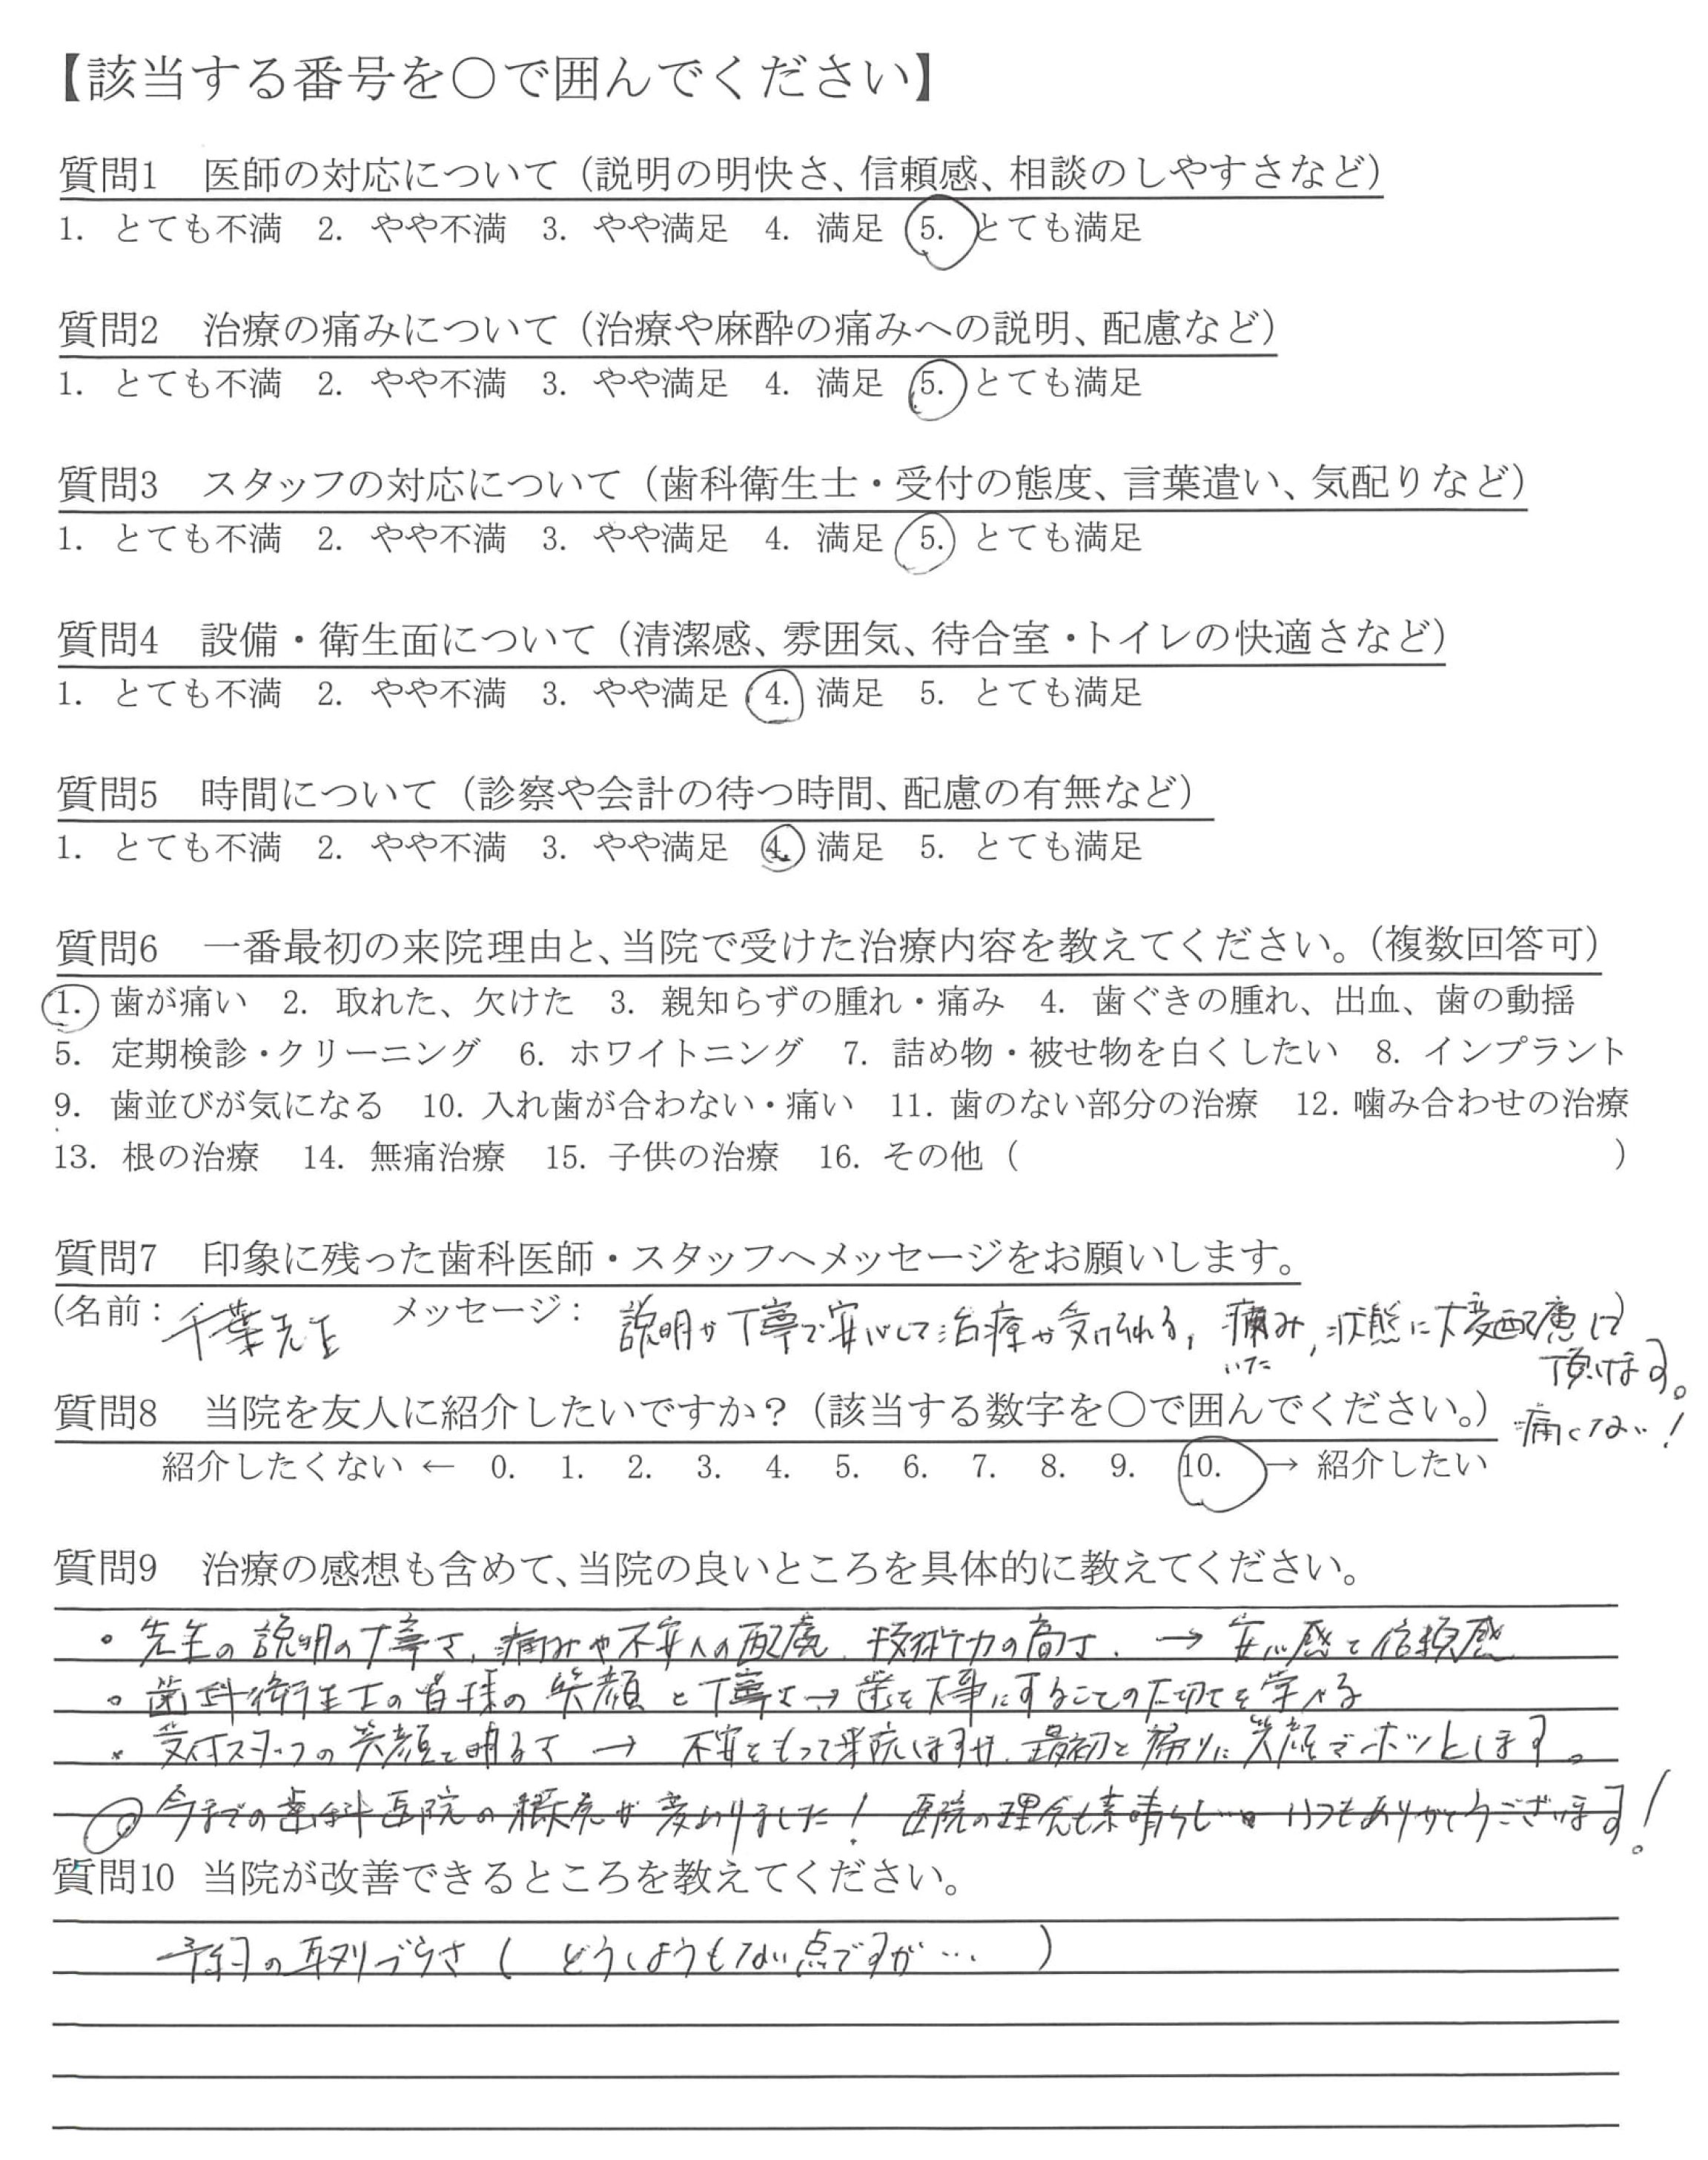 【該当する番号を〇で囲んでください】
質問1　医師の対応について（説明の明快さ、信頼感、相談のしやすさなど）
1. とても不満　2. やや不満　3. やや満足　4. 満足　5. とても満足
質問2　治療の痛みについて（治療や麻酔の痛みへの説明、配慮など）
1. とても不満　2. やや不満　3. やや満足　4. 満足　5. とても満足
質問3　スタッフの対応について（歯科衛生士・受付の態度、言葉遣い、気配りなど）
1. とても不満　2. やや不満　3. やや満足　4. 満足　5. とても満足
質問4　設備・衛生面について（清潔感、雰囲気、待合室・トイレの快適さなど）
1. とても不満　2. やや不満　3. やや満足　4. 満足　5. とても満足
質問5　時間について（診察や会計の待つ時間、配慮の有無など）
1. とても不満　2. やや不満　3. やや満足　4. 満足　5. とても満足
質問6　一番最初の来院理由と、当院で受けた治療内容を教えてください。（複数回答可）
1. 歯が痛い　2. 取れた、欠けた　3. 親知らずの腫れ・痛み　4. 歯ぐきの腫れ、出血、歯の動揺
5. 定期検診・クリーニング　6. ホワイトニング　7. 詰め物・被せ物を白くしたい　8. インプラント
9. 歯並びが気になる　10. 入れ歯が合わない・痛い　11. 歯のない部分の治療　12. 噛み合わせの治療
13. 根の治療　14. 無痛治療　15. 子供の治療　16. その他（　　　　）
質問7　印象に残った歯科医師・スタッフへメッセージをお願いします。
（名前：千葉先生　メッセージ：説明が丁寧で安心して治療が受けられる, 痛み, 状態に大変配慮して）
いた
頂けます。
質問8　当院を友人に紹介したいですか？（該当する数字を〇で囲んでください。）
痛くない！
紹介したくない ← 0. 1. 2. 3. 4. 5. 6. 7. 8. 9. 10. → 紹介したい
質問9　治療の感想も含めて、当院の良いところを具体的に教えてください。
・先生の説明の丁寧さ, 痛みや不安への配慮. 技術力の高さ. → 安心感と信頼感
・歯科衛生士の皆様の笑顔と丁寧さ→歯を大事にすることの大切さを学べる
・受付スタッフの笑顔と明るさ → 不安をもって来院しますが. 最初と帰りに笑顔でホッとします。
◎今までの歯科医院の概念が変わりました！ 医院の理念も素晴らしい いつもありがとうございます！。
質問10　当院が改善できるところを教えてください。
予約の取りづらさ（ どうしようもない点ですが… ）